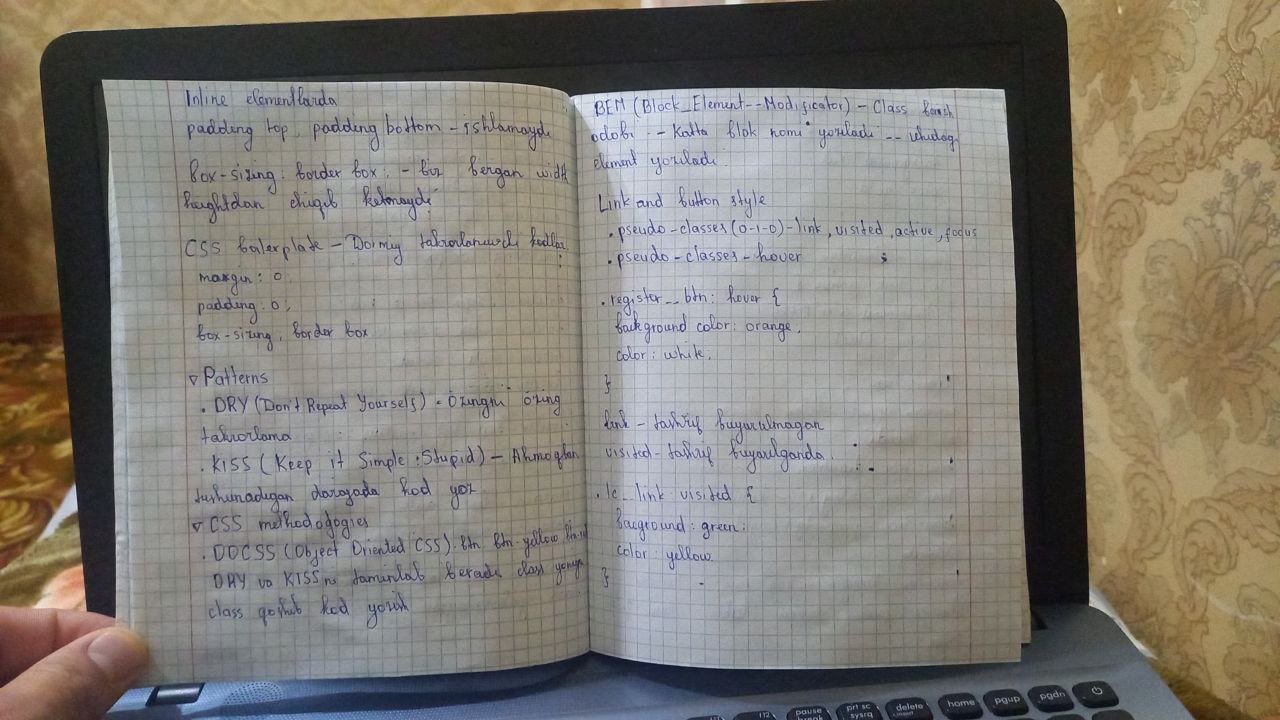 Inline elementlarda
padding top, padding bottom - ishlamaydi
Box-sizing: border box; - biz bergan width
heightdan chiqib ketmaydi
CSS boilerplate - Doimiy takrorlanuvchi kodlar
margin: 0;
padding: 0;
box-sizing, border box
▽ Patterns
• DRY (Don't Repeat Yourself) - O'zingni o'zing
takrorlama
• KISS (Keep it Simple Stupid) - Ahmoqlar
tushunadigan darajada kod yoz
▽ CSS methodogogies
• OOCSS (Object Oriented CSS) btn btn-yellow
DRY va KISSni taminlab beradi class yoniga
class qoshib kod yozish
BEM (Block_Element--Modificator) - Class berish
odobi -- Katta blok nomi yoziladi --
element yoziladi
Link and button style
• pseudo-classes (0-1-0) - link, visited, active, focus
• pseudo-classes - hover
.register__btn: hover {
background color: orange,
color: white,
}
link - tashrif buyurulmagan
visited - tashrif buyurulganda
.lc__link: visited {
bacground: green;
color: yellow.
}
pause
break
prt sc
sysrq
delete
insert
home
pgup
pgdn